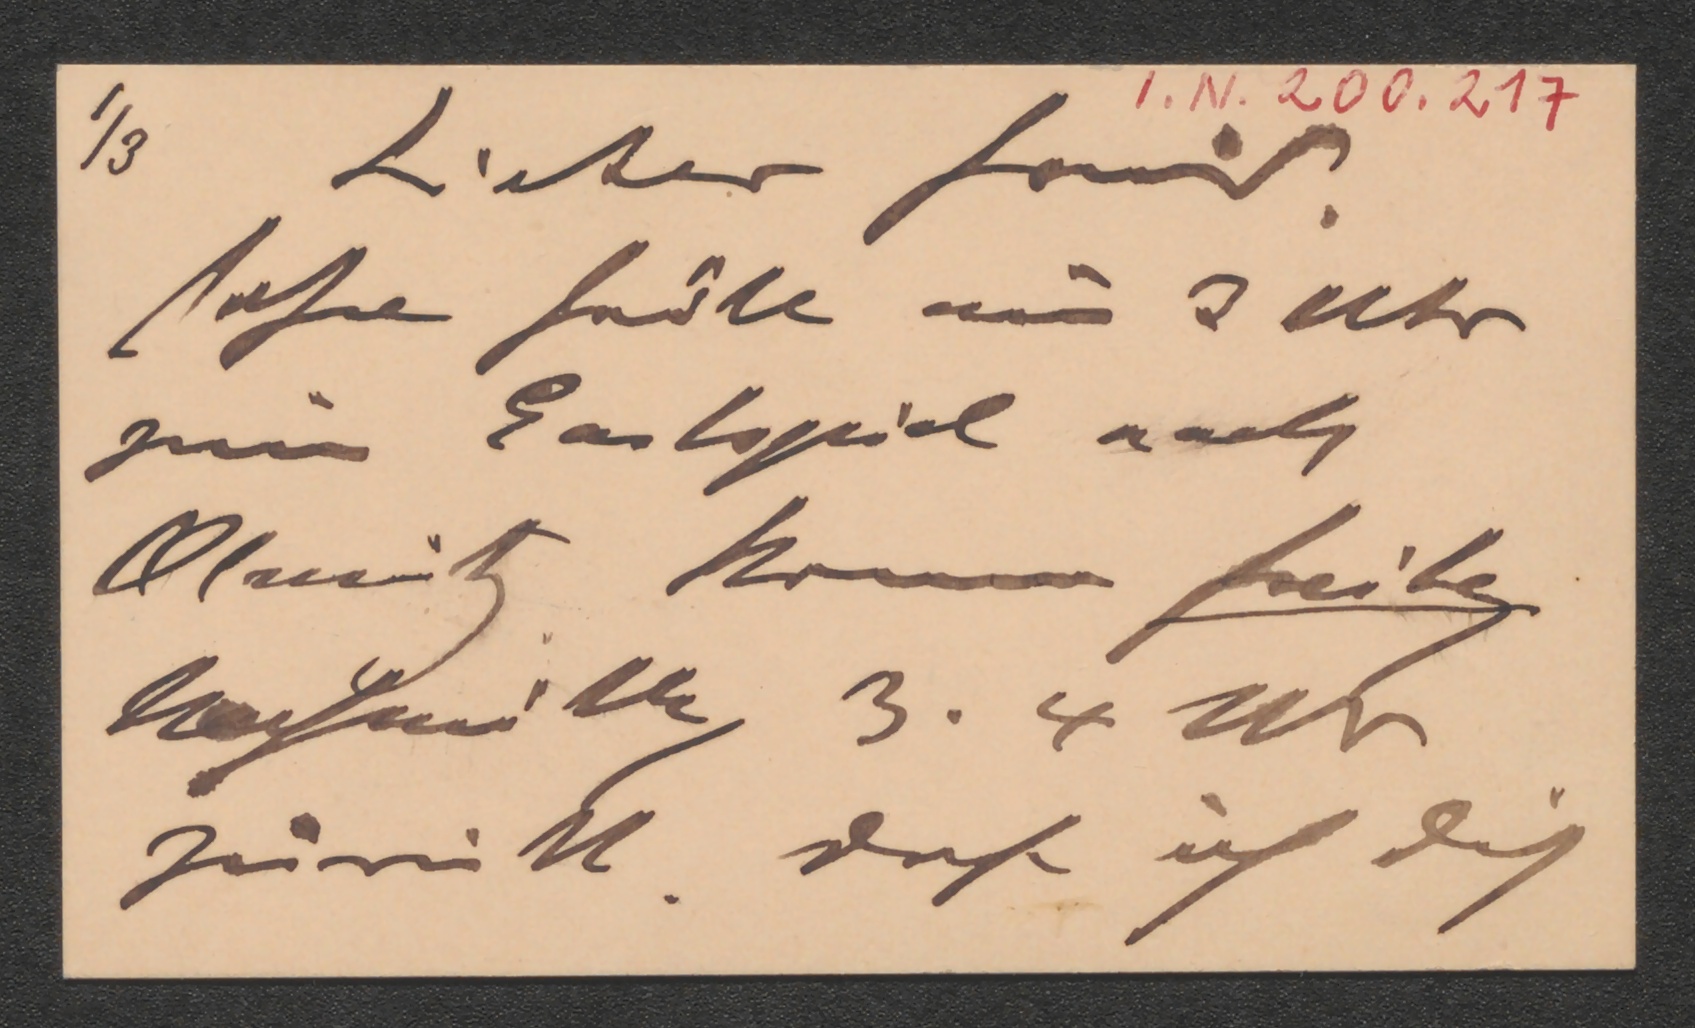 I.N. 200.217
1/3 Lieber Freund.
fahre früh um 7 Uhr
zum Gastspiel nach
Olmütz komme freitag
Nachmittag 3. 4 Uhr
zurück. Darf ich dich